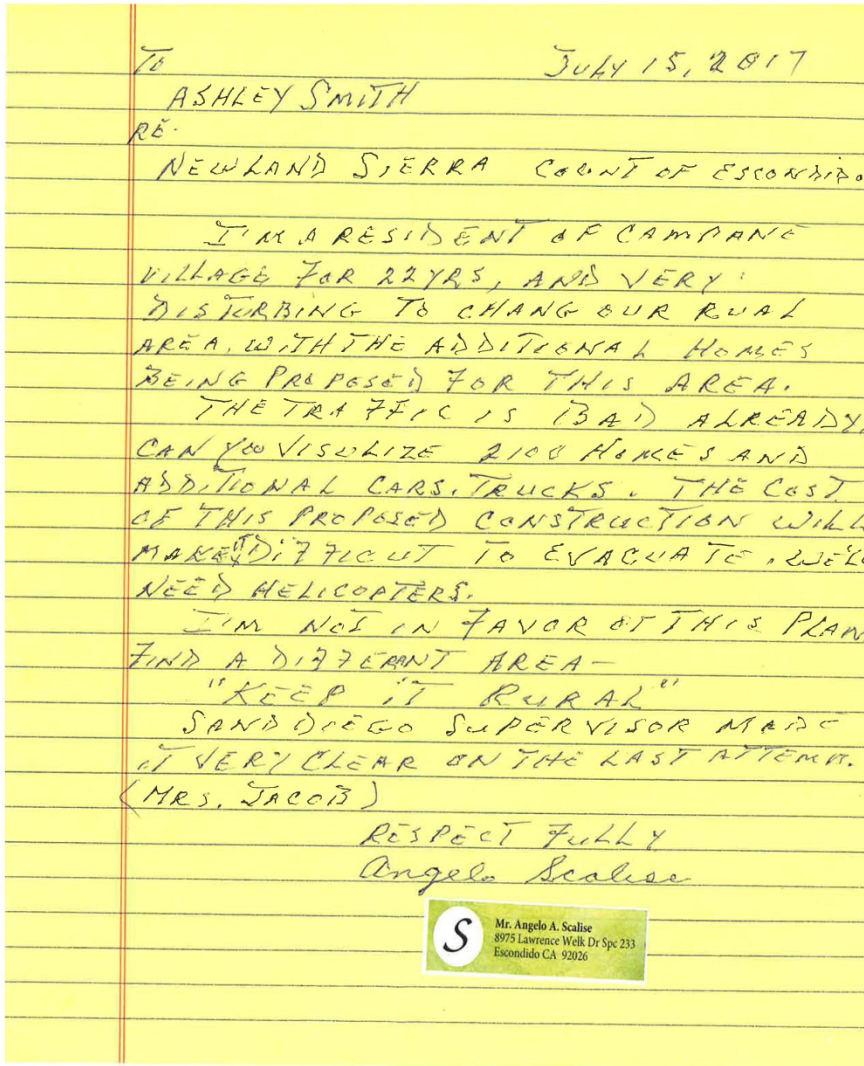 TO JULY 15, 2017
ASHLEY SMITH
RE.
NEWLAND SIERRA COUNT OF ESCONDIDO.
I'M A RESIDENT OF CAMPANE
VILLAGE FOR 22 YRS, AND VERY
DISTURBING TO CHANG OUR RUAL
AREA. WITH THE ADDITIONAL HOMES
BEING PROPOSED FOR THIS AREA.
THE TRAFFIC IS BAD ALREADY,
CAN YOU VISULIZE 2100 HOMES AND
ADDITIONAL CARS, TRUCKS. THE COST
OF THIS PROPOSED CONSTRUCTION WILL
MAKE IT DIFFICUT TO EVACUATE. WE'LL
NEED HELICOPTERS.
I'M NOT IN FAVOR OF THIS PLAN
FIND A DIFFERANT AREA—
"KEEP IT RURAL"
SAND DIEGO SUPERVISOR MADE
IT VERY CLEAR ON THE LAST
(MRS. JACOB)
RESPECT FULLY
Angelo Scalise
S
Mr. Angelo A. Scalise
8975 Lawrence Welk Dr Spc 233
Escondido CA 92026